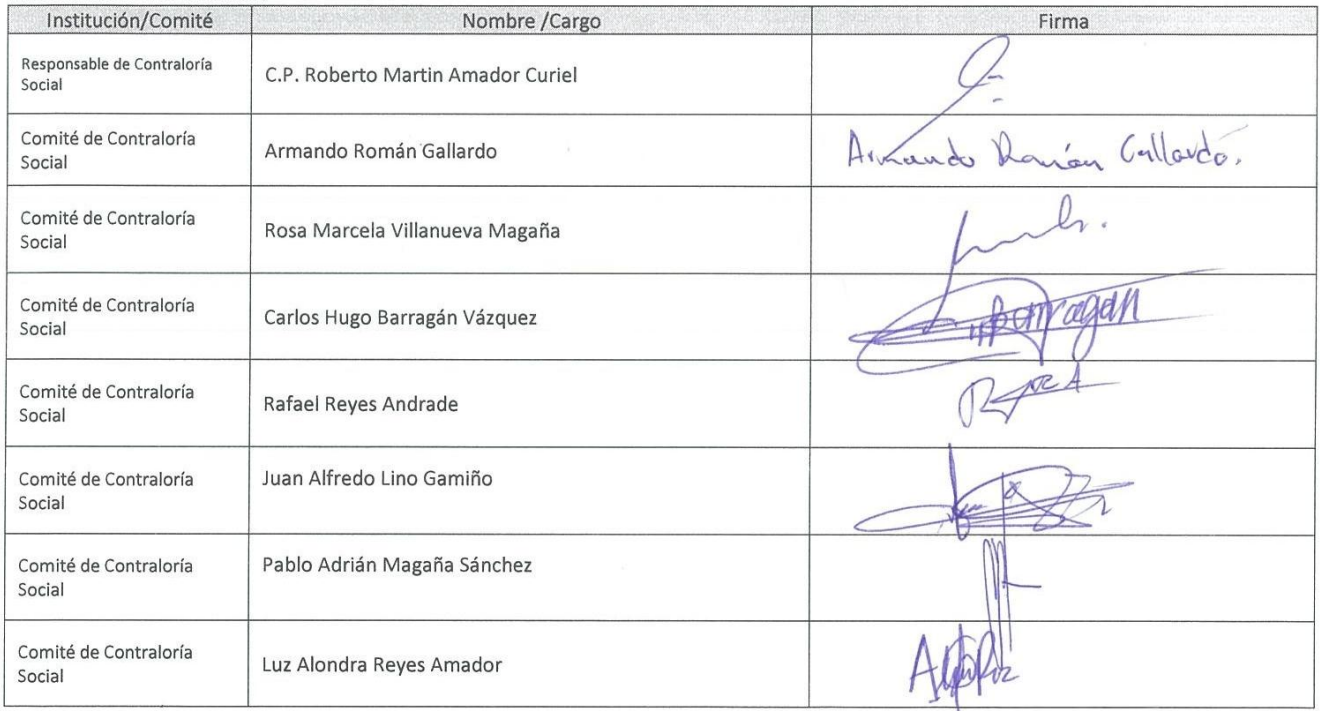 Institución/Comité Nombre /Cargo Firma
Responsable de Contraloría
Social
C.P. Roberto Martin Amador Curiel
Comité de Contraloría
Social
Armando Román Gallardo
Armando Román Gallardo.
Comité de Contraloría
Social
Rosa Marcela Villanueva Magaña
Comité de Contraloría
Social
Carlos Hugo Barragán Vázquez
Barragan
Comité de Contraloría
Social
Rafael Reyes Andrade
Comité de Contraloría
Social
Juan Alfredo Lino Gamiño
Comité de Contraloría
Social
Pablo Adrián Magaña Sánchez
Comité de Contraloría
Social
Luz Alondra Reyes Amador